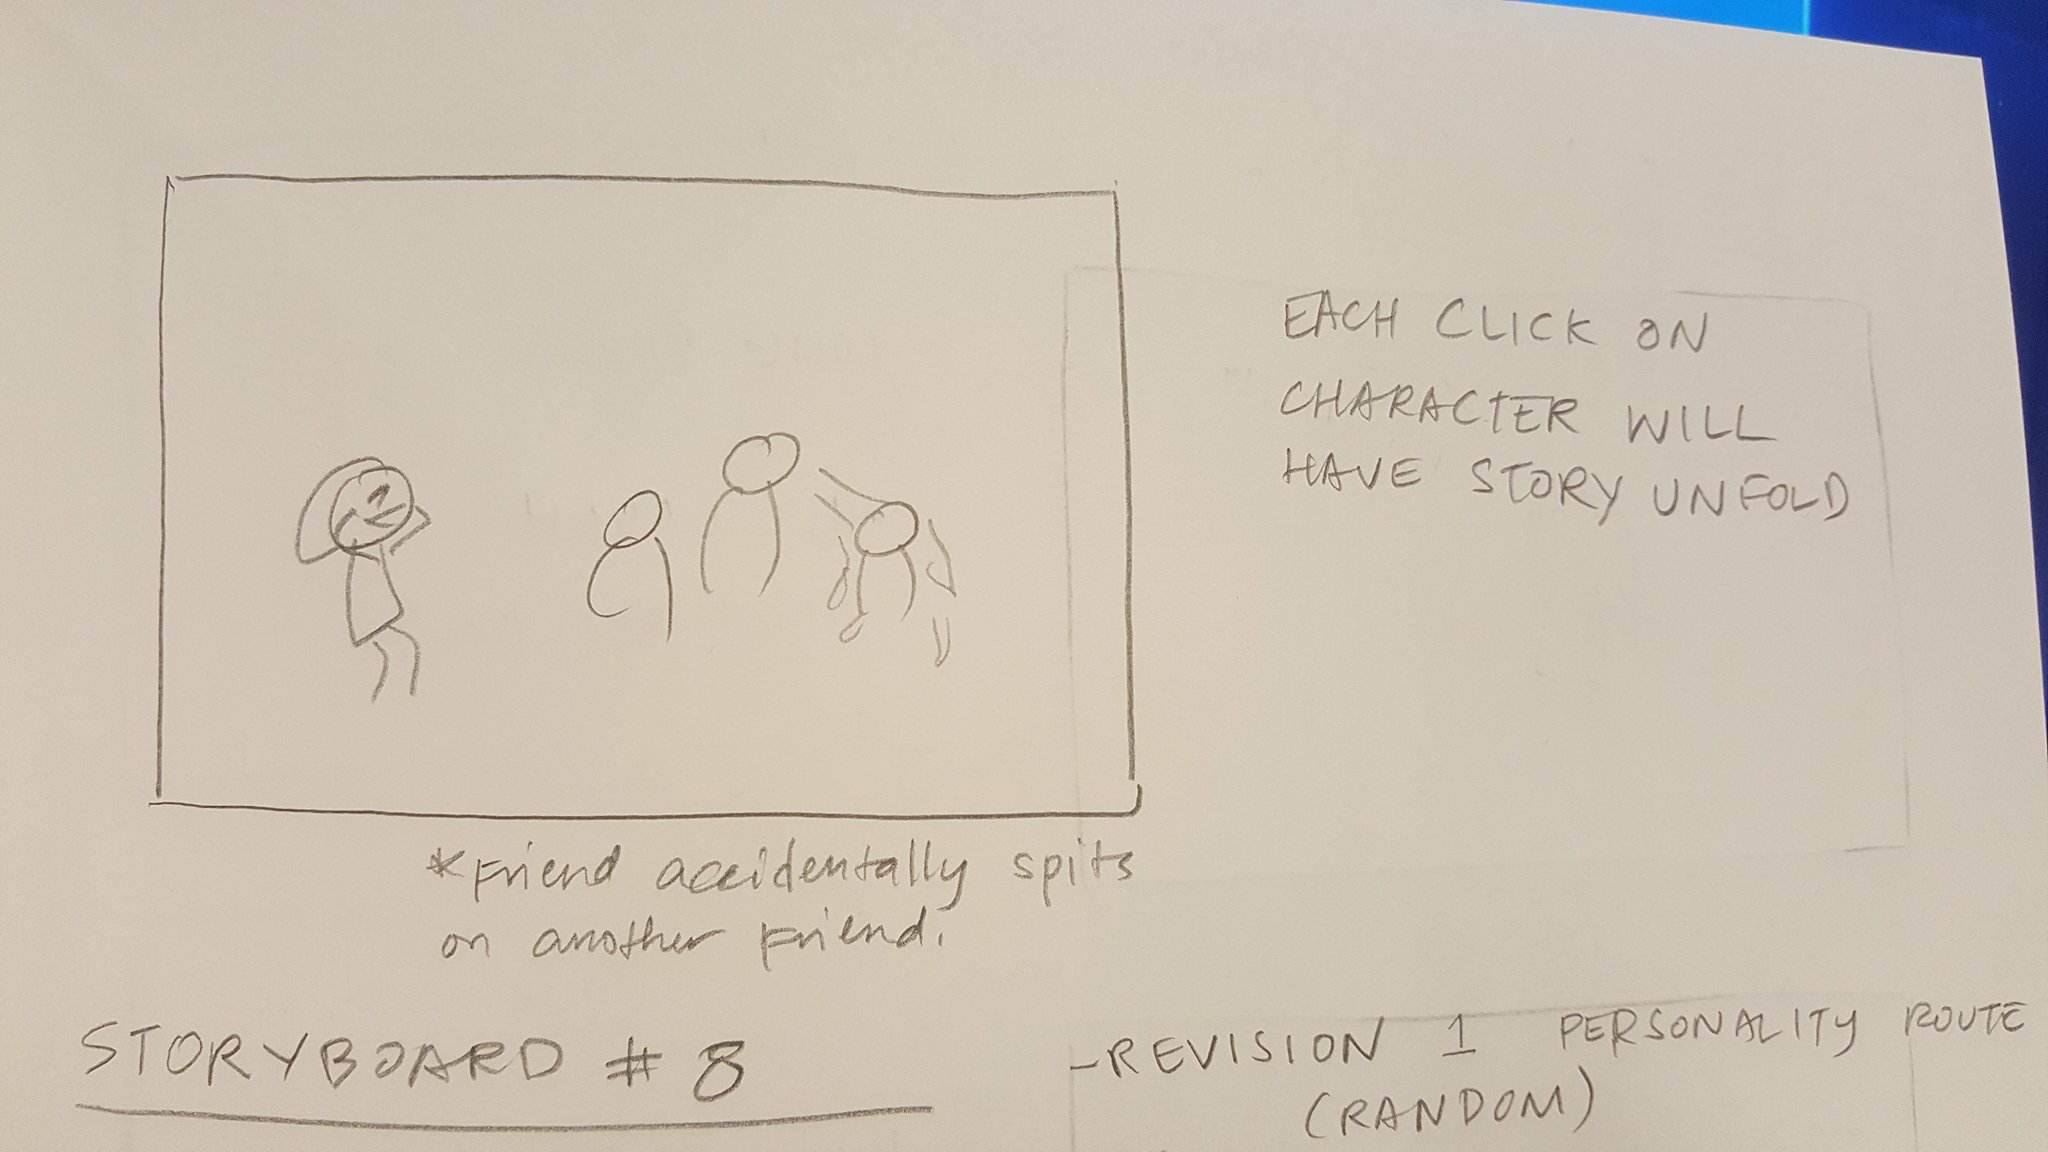 EACH CLICK ON
CHARACTER WILL
HAVE STORY UNFOLD
*Friend accidentally spits
on another Friend.
STORYBOARD # 8
-REVISION 1 PERSONALITY ROUTE
(RANDOM)